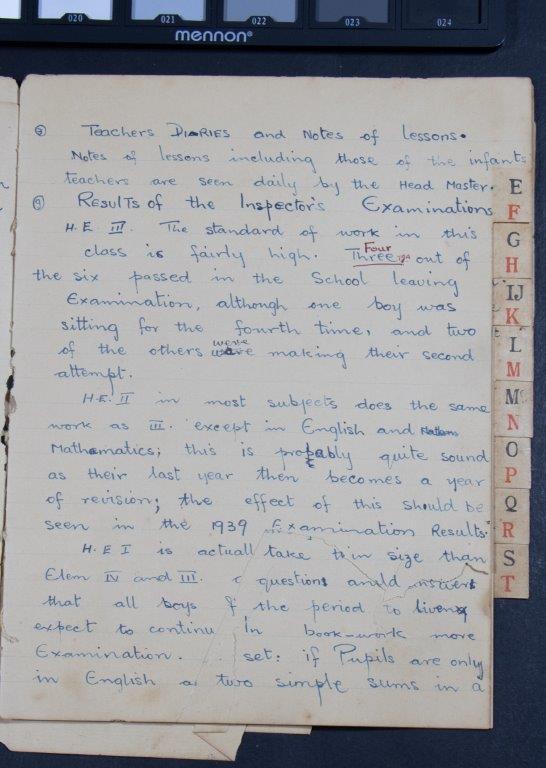 020 021 022 023 024
mennon®
⑤ Teachers Diaries and Notes of Lessons.
Notes of lessons including those of the infants
teachers are seen daily by the Head Master.
⑨ Results of the Inspector's Examinations
H.E III. The standard of work in this
class is fairly high. Three Four out of
the six passed in the School leaving
Examination, although one boy was
sitting for the fourth time, and two
of the others were were making their second
attempt.
H.E. II in most subjects does the same
work as III. except in English and
Mathematics; this is probably quite sound
as their last year then becomes a year
of revision; the effect of this should be
seen in the 1939 Examination Results.
H.E I is actuall take in size than
Elem IV and III. questions and answers
that all boys the period to liven
expect to continu In book-work more
Examination. set: if Pupils are only
in English two simple sums in a
E
F
G
H
IJ
K
L
M
M
N
O
P
Q
R
S
T